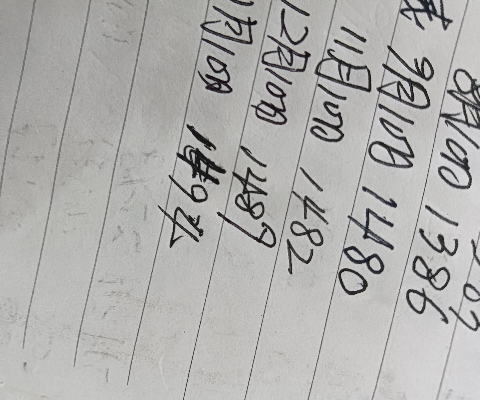 8月10日 1386
9月10日 1480
11月10日 1482
12月10日 1489
1月10日 1494